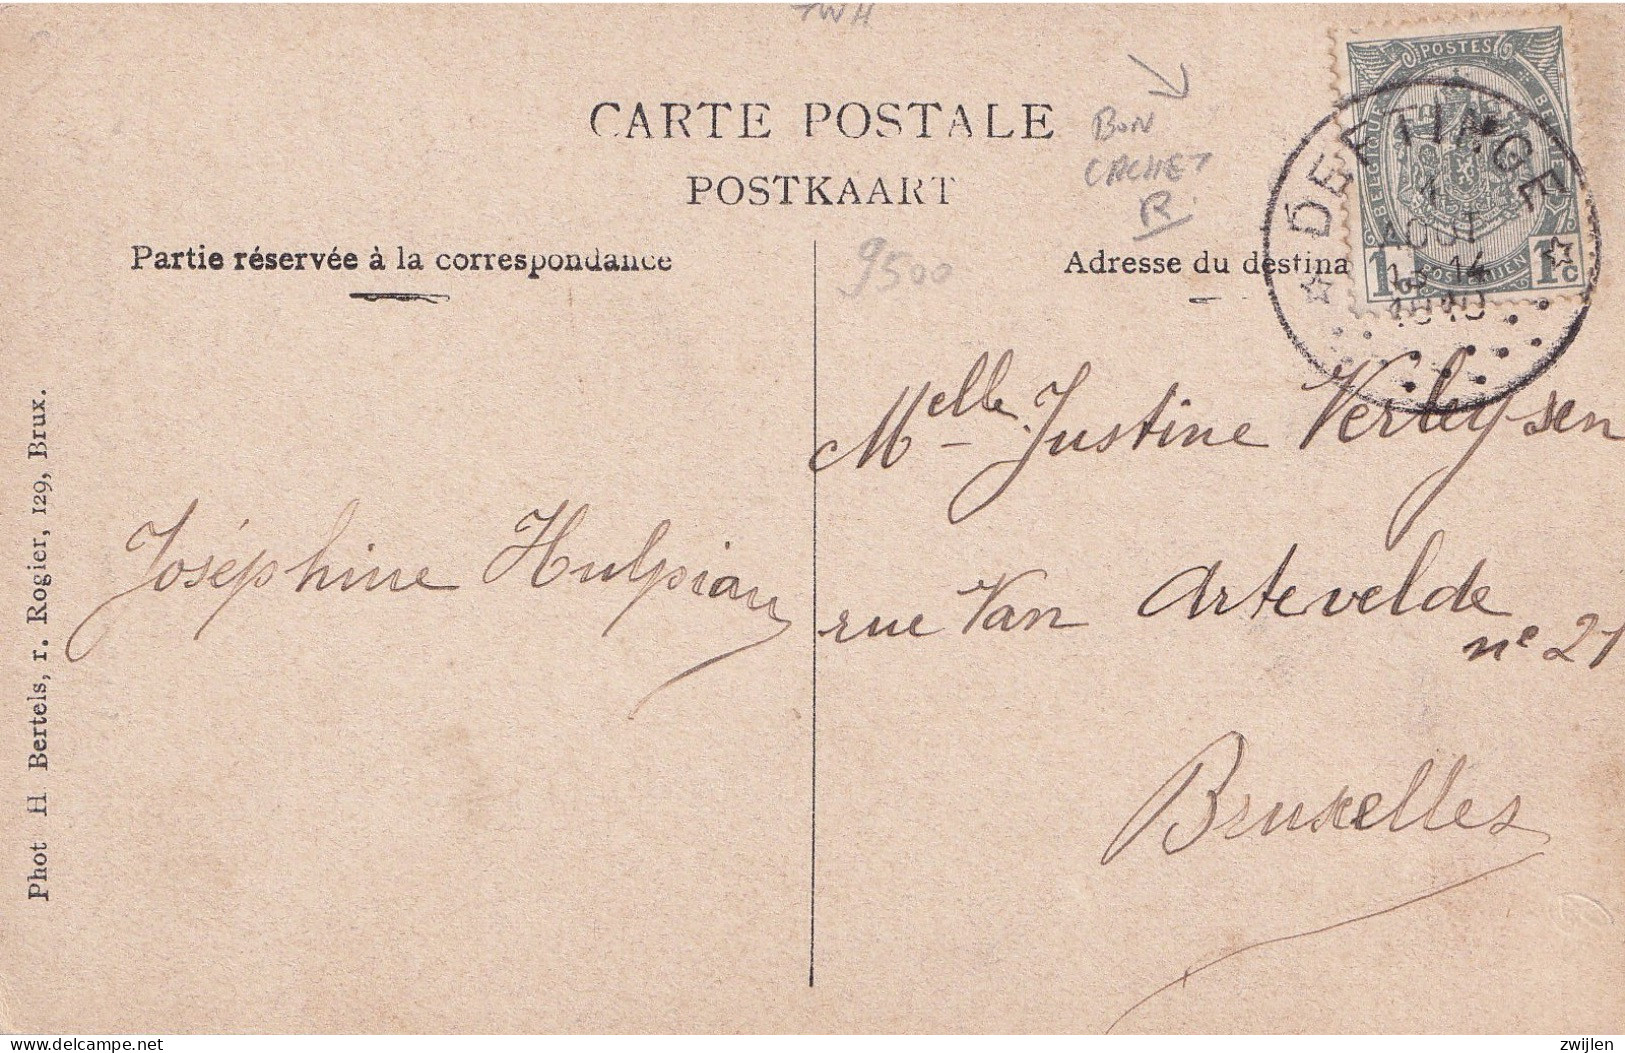 CARTE POSTALE
POSTKAART
BON
CACHET
R.
9500
Partie réservée à la correspondance
Adresse du destina
POSTES
BELGIQUE
BELGIË
POSTERIJEN
1c 1c
DEFTINGE
AOUT
13-14
1910
Melle Justine Verleysen
rue Van Artevelde
no 21
Bruxelles
Joséphine Hulpiau
Phot H. Bertels, r. Rogier, 129, Brux.
delcampe.net
zwijlen